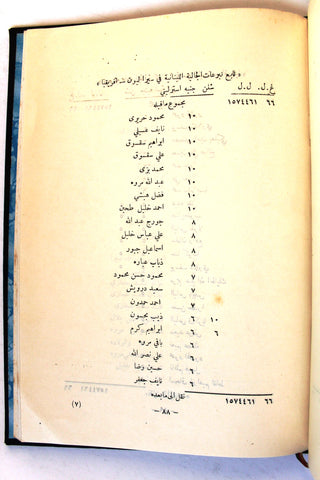 « تابع تبرعات الجالية اللبنانية في سيراليون افريقيا »
غ.ل. ل.ل شلن جنيه استرليني
٦٦ ١٥٧٤٤٦١ مجموع ماقبله
١٠ محمود حريري
١٠ نايف
١٠ ابراهيم سقسوق
١٠ علي سقسوق
١٠ محمد بزي
١٠ عبد الله مروه
١٠ فضل هيشي
١٠ احمد خليل طحين
٨ جورج عبد الله
٨ علي عباس خليل
٨ اسماعيل جبور
٨ ذياب عباره
٧ محمود حسن محمود
٧ سعيد درويش
٧ احمد حمدون
١٠ ٦ ذيب بحسون
٦ ٦ ابراهيم كرم
٦ باقي مروه
٦ علي نصر الله
٦ حسين رضا
٦ نايف جعفر
٦٦ ١٥٧٤٤٦١ نقل الى مابعده
— ٨٨ —
(٧)